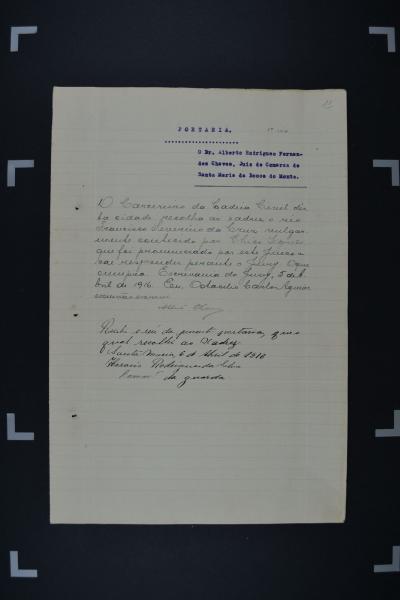 PORTARIA.
O Dr. Alberto Rodrigues Fernan-
des Chaves, Juiz de Comarca de
Santa Maria da Bocca do Monte.
O Carcereiro da Cadeia Civil des
ta cidade recolha ao xadrez o réo
Francisco Severino da Cruz vulgar-
mente conhecido por Chico
que foi pronunciado por este Juizo e
vai responder perante o Jury. O que
cumpra. Escrivania do Jury, 5 de A-
bril de 1916. Eu, Octacilio Carlos Aguiar
escrivão escrevi
Recebi o réo da portaria, que
qual recolhi ao Xadrez
Santa Maria 6 de Abril de 1916
Horacio Rodrigues da Silva
da guarda